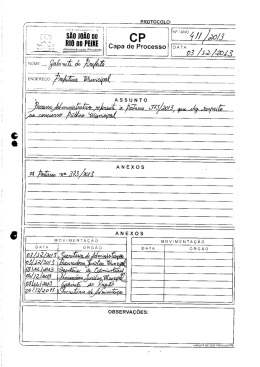 PROTOCOLO:
SÃO JOÃO DO
RIO DO PEIXE
CP
Capa de Processo
Nº / ANO 411/2013
DATA
03/12/2013
NOME: Gabinete do Prefeito
ENDEREÇO: Prefeitura Municipal
ASSUNTO
Processo Administrativo referente a Portaria 373/2013, que diz respeito
ao concurso público Municipal
ANEXOS
01 Portaria nº 373/2013
ANEXOS
MOVIMENTAÇÃO
MOVIMENTAÇÃO
DATA
ORGÃO
DATA
ORGÃO
03/12/2013 Secretaria de Administração
03/12/2013 Procuradoria Jurídica Municipal
Secretaria de Administração
Procuradoria Jurídica Municipal
Gabinete do Prefeito
Secretaria de Administração
OBSERVAÇÕES: